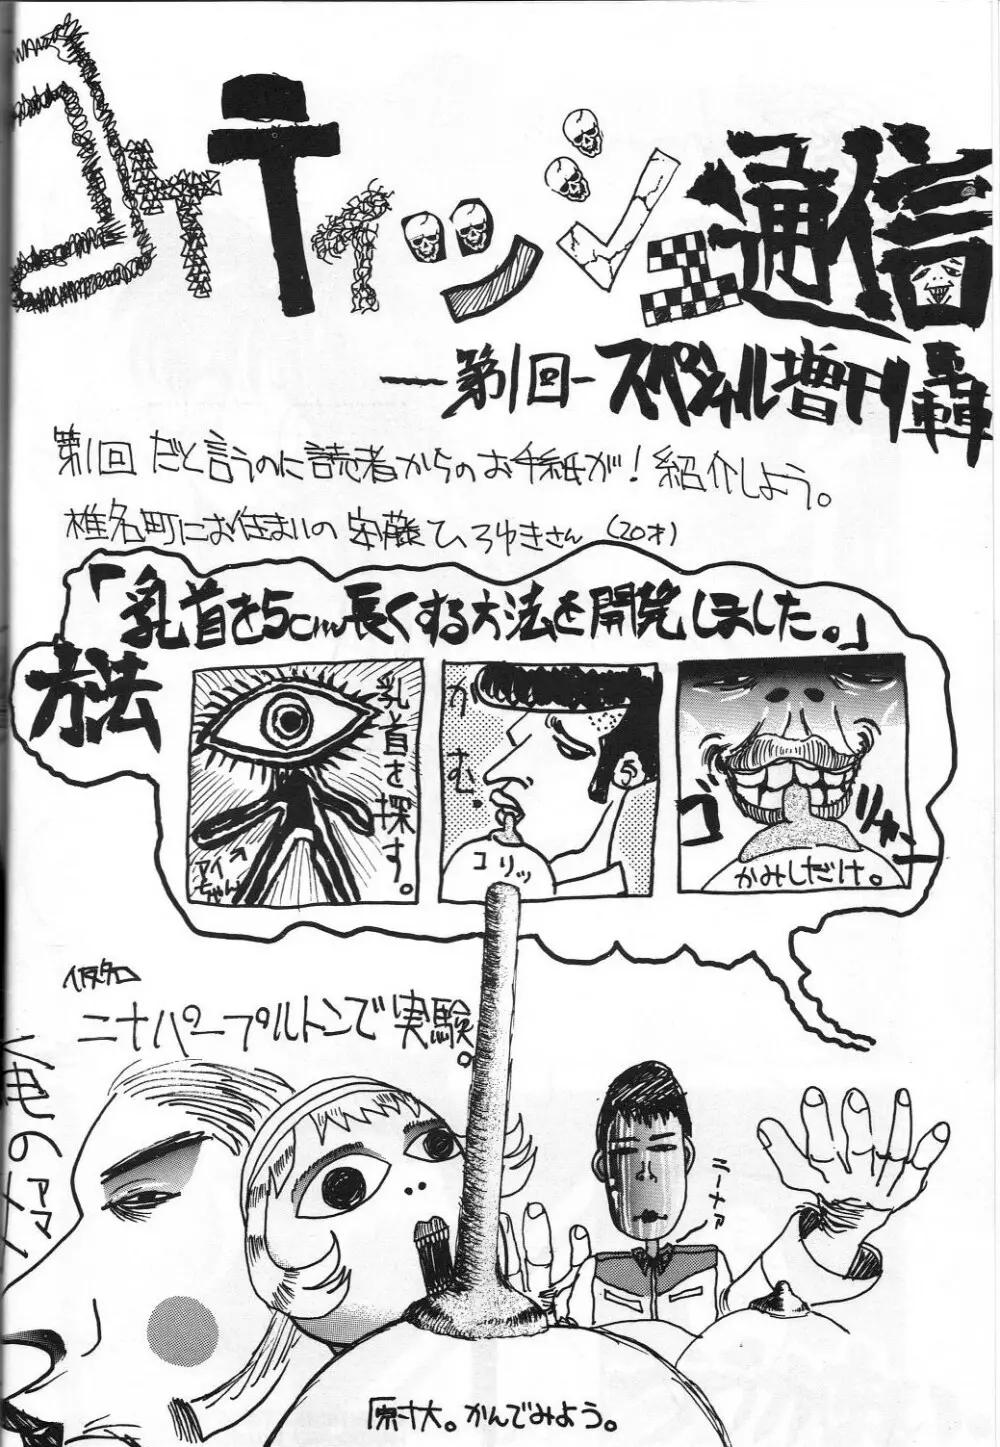 コティッシュ通信
—第1回— スペシャル増刊轟
第1回 だと言うのに読者からのお手紙が！紹介しよう。
椎名町にお住まいの 安藤ひろゆきさん（20才）
「乳首を5cm長くする方法を開発しました。」
方法
乳首を探す。
アイちゃん
かむ。
コリッ
ゴリャー
かみしだけ。
ニナパープルトンで実験。
ニーナァ
原寸大。かんでみよう。